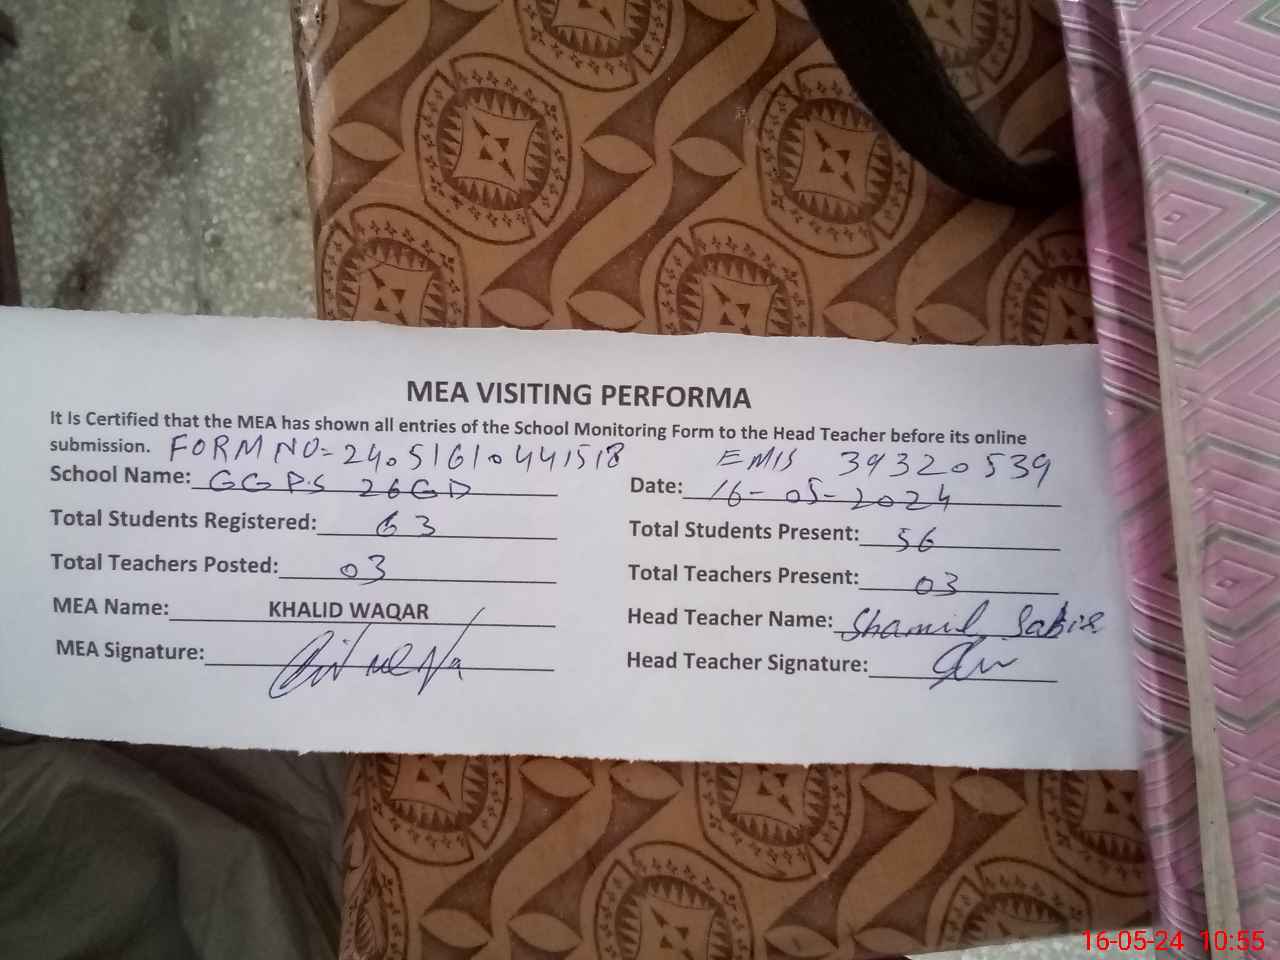 MEA VISITING PERFORMA
It Is Certified that the MEA has shown all entries of the School Monitoring Form to the Head Teacher before its online
submission. FORM NO- 24051610441518 EMIS 39320539
School Name: GGPS 26GD Date: 16-05-2024
Total Students Registered: 63 Total Students Present: 56
Total Teachers Posted: 03 Total Teachers Present: 03
MEA Name: KHALID WAQAR Head Teacher Name: Shamil Sabir
MEA Signature: Head Teacher Signature:
16-05-24 10:55